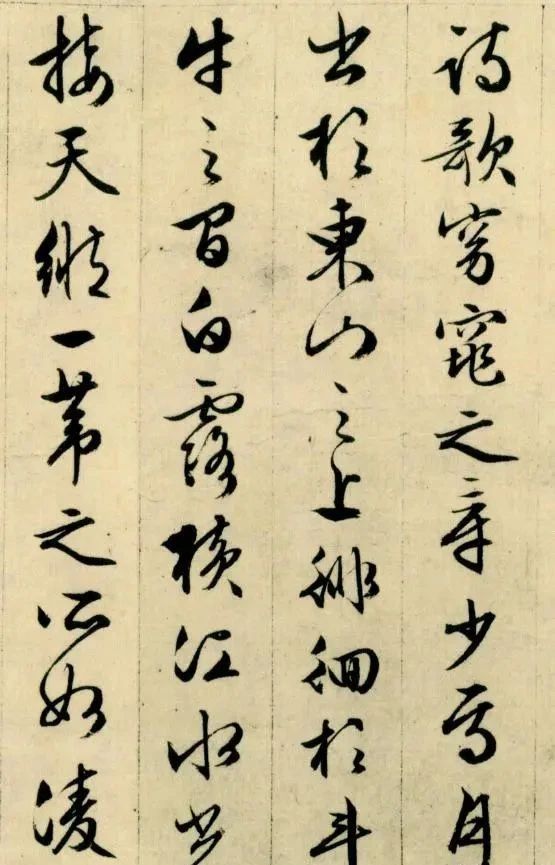 詩歌窈窕之章少焉月
出於東山之上徘徊於斗
牛之間白露橫江水光
接天縱一葦之所如凌